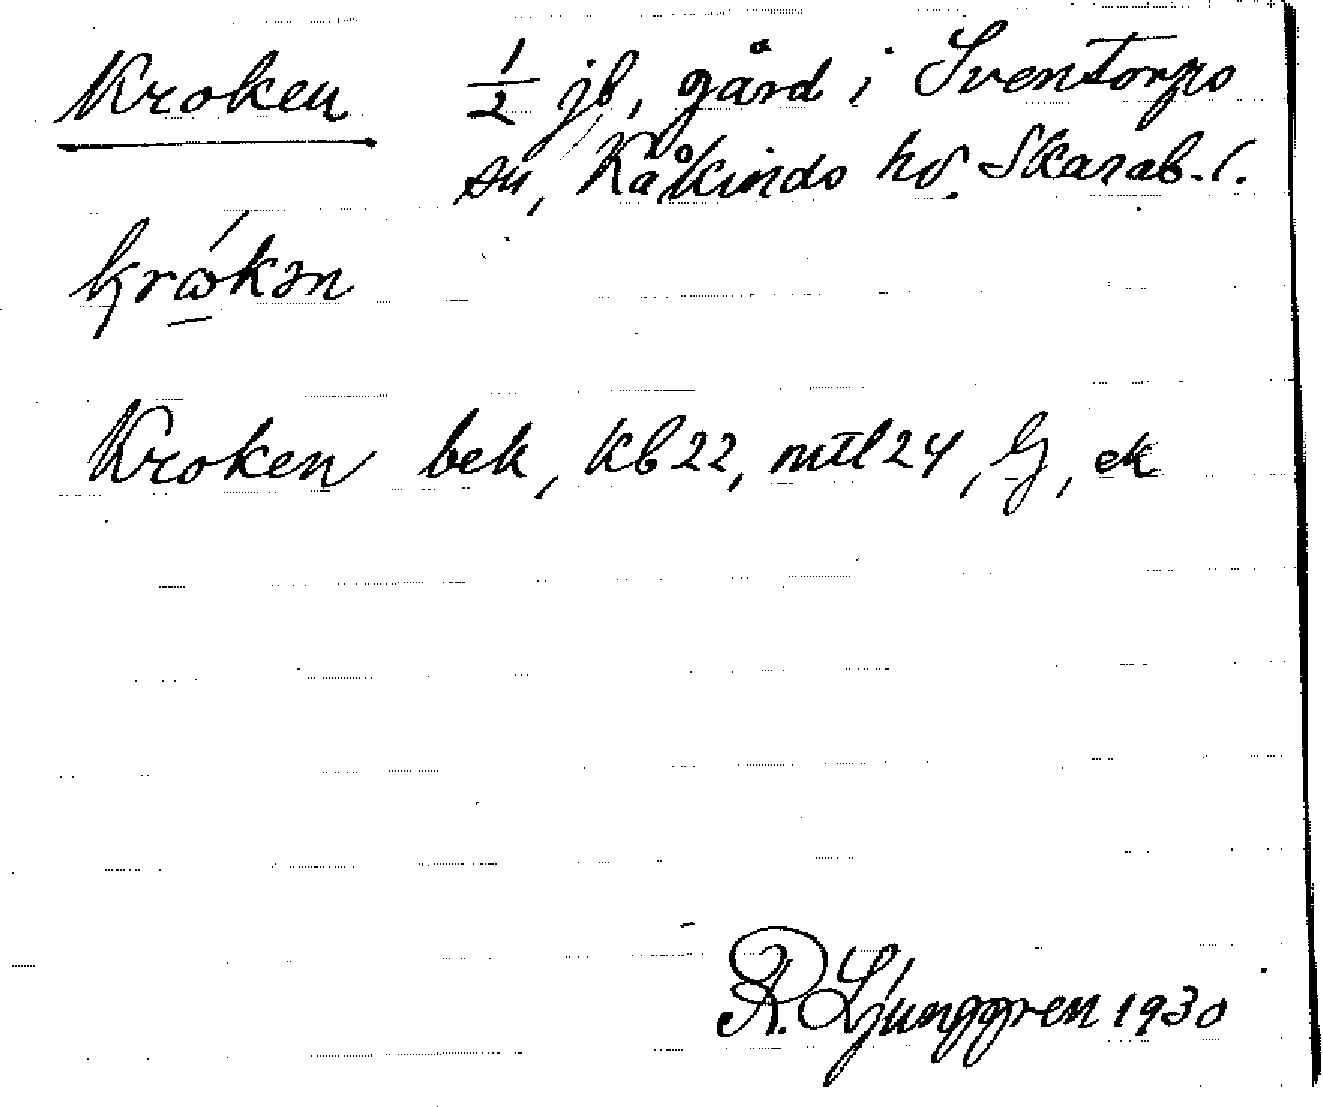 Kroken ½ jb, gård i Sventorps
sn, Kåkinds hd. Skarab. l.
krókən
Kroken bek, kb 22, mtl 24, Lj, ek
R. Ljunggren 1930